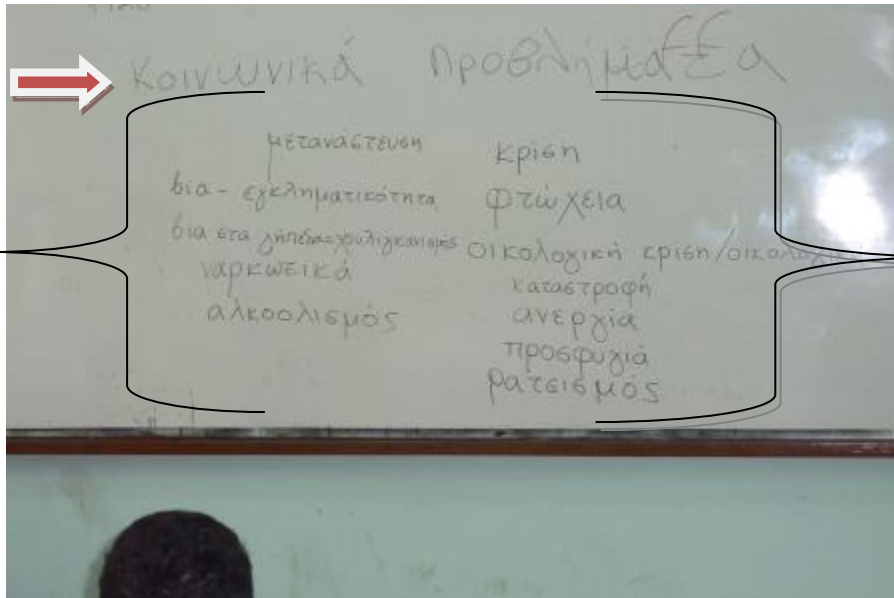 Κοινωνικά προβλήματα
μετανάστευση
βία - εγκληματικότητα
βία στα γήπεδα-χουλιγκανισμός
ναρκωτικά
αλκοολισμός
κρίση
φτώχεια
οικολογική κρίση/οικολογική
καταστροφή
ανεργία
προσφυγιά
ρατσισμός